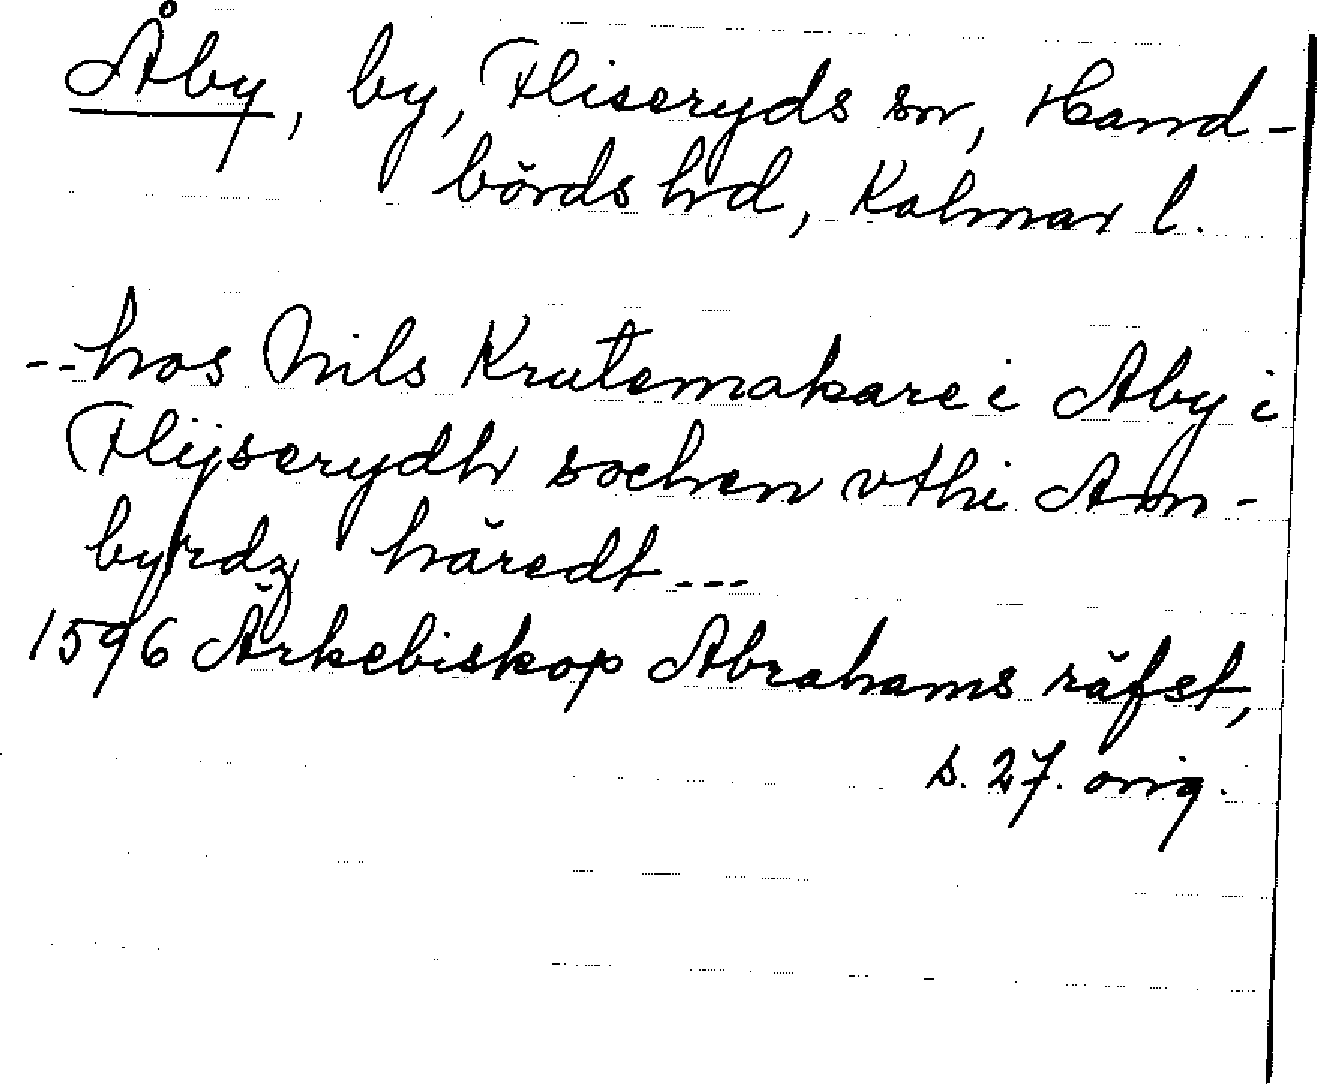 Åby, by, Fliseryds sn, Hand-
börds hd, Kalmar l.
--hos Nils Krutemakare i Aby i
Flijserydh sochen vthi Ann-
byrdz häredt---
1596 Ärkebiskop Abrahams räfst,
s. 27. orig.